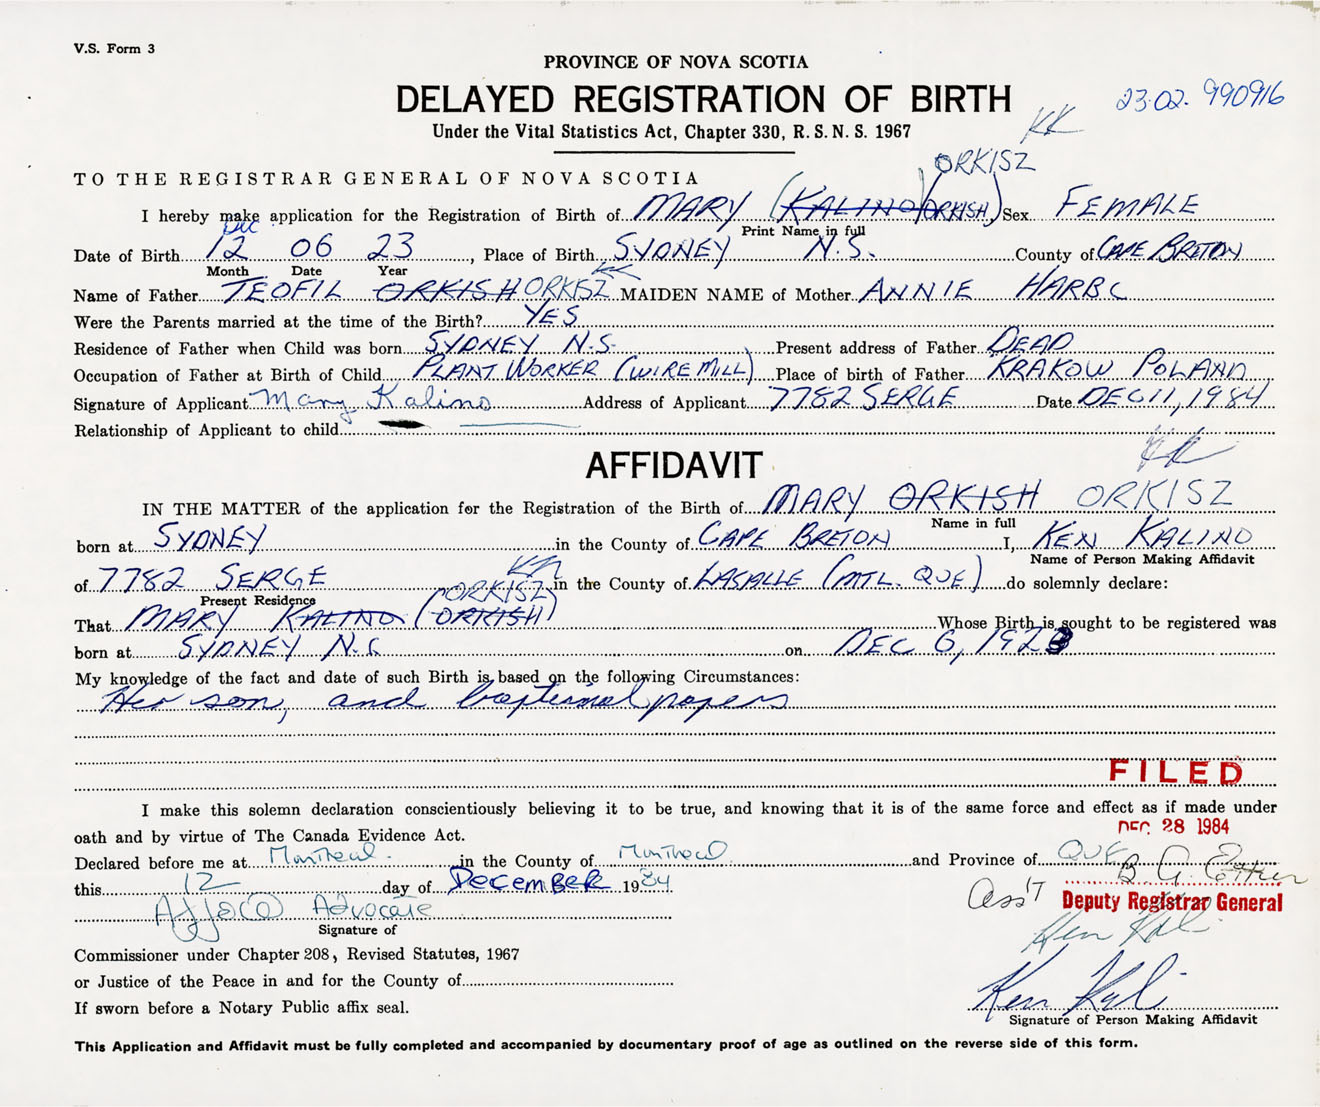 V.S. Form 3
PROVINCE OF NOVA SCOTIA
DELAYED REGISTRATION OF BIRTH
23-02. 990916
Under the Vital Statistics Act, Chapter 330, R. S. N. S. 1967
KK
ORKISZ
TO THE REGISTRAR GENERAL OF NOVA SCOTIA
I hereby make application for the Registration of Birth of MARY (KALINO) (ORKISH) Sex FEMALE
Print Name in full
Dec
Date of Birth 12 06 23, Place of Birth SYDNEY N.S. County of CAPE BRETON
Month Date Year
KK
Name of Father TEOFIL ORKISH ORKISZ MAIDEN NAME of Mother ANNIE HARBC
Were the Parents married at the time of the Birth? YES
Residence of Father when Child was born SYDNEY N.S. Present address of Father DEAD
Occupation of Father at Birth of Child PLANT WORKER (WIRE MILL) Place of birth of Father KRAKOW POLAND
Signature of Applicant Mary Kalino Address of Applicant 7782 SERGE Date DEC 11, 1984
Relationship of Applicant to child
AFFIDAVIT
KK
IN THE MATTER of the application for the Registration of the Birth of MARY ORKISH ORKISZ
Name in full
born at SYDNEY in the County of CAPE BRETON I, KEN KALINO
Name of Person Making Affidavit
KK
of 7782 SERGE in the County of LASALLE (MTL. QUE.) do solemnly declare:
Present Residence
ORKISZ
That MARY KALINO (ORKISH) Whose Birth is sought to be registered was
born at SYDNEY N.S. on DEC 6, 1923
My knowledge of the fact and date of such Birth is based on the following Circumstances:
Her son, and baptismal papers
FILED
I make this solemn declaration conscientiously believing it to be true, and knowing that it is of the same force and effect as if made under
oath and by virtue of The Canada Evidence Act.
DEC 28 1984
Declared before me at Montreal in the County of Montreal and Province of QUE.
this 12 day of DECEMBER 1984
Ass'T Deputy Registrar General
Advocate
Signature of
Ken Kal
Commissioner under Chapter 208, Revised Statutes, 1967
or Justice of the Peace in and for the County of
Ken Kal
If sworn before a Notary Public affix seal.
Signature of Person Making Affidavit
This Application and Affidavit must be fully completed and accompanied by documentary proof of age as outlined on the reverse side of this form.